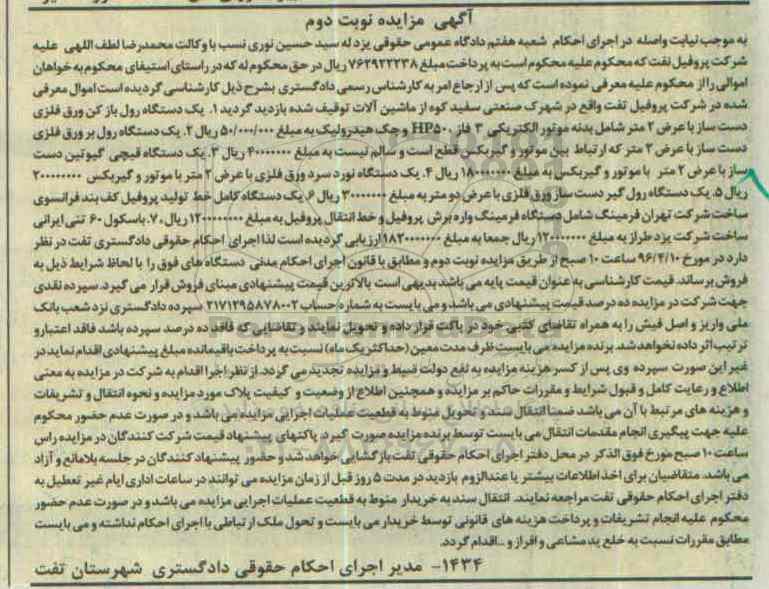 آگهی مزایده نوبت دوم
به موجب نیابت واصله در اجرای احکام شعبه هفتم دادگاه عمومی حقوقی یزد له سید حسین نوری نسب با وکالت محمدرضا لطف اللهی علیه
شرکت پروفیل نفت که محکوم علیه محکوم است به پرداخت مبلغ ۷۶۲۹۲۲۲۳۸ ریال در حق محکوم له که در راستای استیفای محکوم به خواهان
اموالی را از محکوم علیه معرفی نموده است که پس از ارجاع امر به کارشناس رسمی دادگستری بشرح ذیل کارشناسی گردیده است اموال معرفی
شده در شرکت پروفیل تفت واقع در شهرک صنعتی سفید کوه از ماشین آلات توقیف شده بازدید گردید ۱. یک دستگاه رول باز کن ورق فلزی
دست ساز با عرض ۲ متر شامل بدنه موتور الکتریکی ۳ فاز HP۵۰۰ و جک هیدرولیک به مبلغ ۵۰/۰۰۰/۰۰۰ ریال ۲. یک دستگاه رول بر ورق فلزی
دست ساز با عرض ۲ متر که ارتباط بین موتور و گیربکس قطع است و سالم نیست به مبلغ ۴۰۰۰۰۰۰۰ ریال ۳. یک دستگاه قیچی گیوتین دست
ساز با عرض ۲ متر با موتور و گیربکس به مبلغ ۱۸۰۰۰۰۰۰۰ ریال ۴. یک دستگاه نورد سرد ورق فلزی با عرض ۲ متر با موتور و گیربکس ۲۰۰۰۰۰۰۰۰
ریال ۵. یک دستگاه رول گیر دست ساز ورق فلزی با عرض دو متر به مبلغ ۳۰۰۰۰۰۰۰ ریال ۶. یک دستگاه کامل خط تولید پروفیل کف بند فرانسوی
ساخت شرکت تهران فرمینگ شامل دستگاه فرمینگ واره برش پروفیل و خط انتقال پروفیل به مبلغ ۱۲۰۰۰۰۰۰۰۰ ریال، ۷. باسکول ۶۰ تنی ایرانی
ساخت شرکت یزد طراز به مبلغ ۱۲۰۰۰۰۰۰۰ ریال جمعا به مبلغ ۱۸۲۰۰۰۰۰۰۰ ارزیابی گردیده است لذا اجرای احکام حقوقی دادگستری تفت در نظر
دارد در مورخ ۹۶/۴/۱۰ ساعت ۱۰ صبح از طریق مزایده نوبت دوم و مطابق با قانون اجرای احکام مدنی دستگاه های فوق را با لحاظ شرایط ذیل به
فروش برساند. قیمت کارشناسی به عنوان قیمت پایه می باشد بدیهی است بالاترین قیمت پیشنهادی مبنای فروش قرار می گیرد. سپرده نقدی
جهت شرکت در مزایده ده درصد قیمت پیشنهادی می باشد و می بایست به شماره حساب ۲۱۷۱۲۹۵۸۷۸۰۰۲ سپرده دادگستری نزد شعب بانک
ملی واریز و اصل فیش را به همراه تقاضای کتبی خود در پاکت قرار داده و تحویل نمایند و تقاضایی که فاقد ده درصد سپرده باشد فاقد اعتبار و
ترتیب اثر داده نخواهد شد. برنده مزایده می بایست ظرف مدت معین (حداکثر یک ماه) نسبت به پرداخت باقیمانده مبلغ پیشنهادی اقدام نماید در
غیر این صورت سپرده وی پس از کسر هزینه مزایده به نفع دولت ضبط و مزایده تجدید می گردد. از نظر اجرا اقدام به شرکت در مزایده به معنی
اطلاع و رعایت کامل و قبول شرایط و مقررات حاکم بر مزایده و همچنین اطلاع از وضعیت و کیفیت پلاک مورد مزایده و نحوه انتقال و تشریفات
و هزینه های مرتبط با آن می باشد ضمنا انتقال سند و تحویل منوط به قطعیت عملیات اجرایی مزایده می باشد و در صورت عدم حضور محکوم
علیه جهت پیگیری انجام مقدمات انتقال می بایست توسط برنده مزایده صورت گیرد. پاکتهای پیشنهاد قیمت شرکت کنندگان در مزایده راس
ساعت ۱۰ صبح مورخ فوق الذکر در محل دفتر اجرای احکام حقوقی تفت بازگشایی خواهد شد و حضور پیشنهاد کنندگان در جلسه بلامانع و آزاد
می باشد. متقاضیان برای اخذ اطلاعات بیشتر یا عندالزوم بازدید در مدت ۵ روز قبل از زمان مزایده می توانند در ساعات اداری ایام غیر تعطیل به
دفتر اجرای احکام حقوقی تفت مراجعه نمایند. انتقال سند به خریدار منوط به قطعیت عملیات اجرایی مزایده می باشد و در صورت عدم حضور
محکوم علیه انجام تشریفات و پرداخت هزینه های قانونی توسط خریدار می بایست و تحول ملک ارتباطی با اجرای احکام نداشته و می بایست
مطابق مقررات نسبت به خلع ید مشاعی و افراز و ...اقدام گردد.
۱۴۳۴- مدیر اجرای احکام حقوقی دادگستری شهرستان تفت